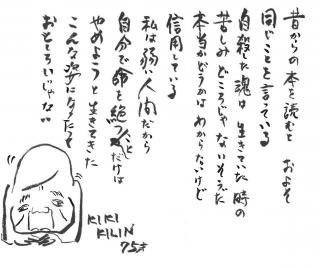 昔からの本を読むと　およそ
同じことを言っている
自殺した魂は　生きていた時の
苦しみどころじゃないそうだ
本当かどうかは　わからないけど
信用している
私は弱い人間だから
自分で命を絶つことだけは
やめようと生きてきた
こんな姿になったって
おもしろいじゃない
KIKI
KILIN
75才